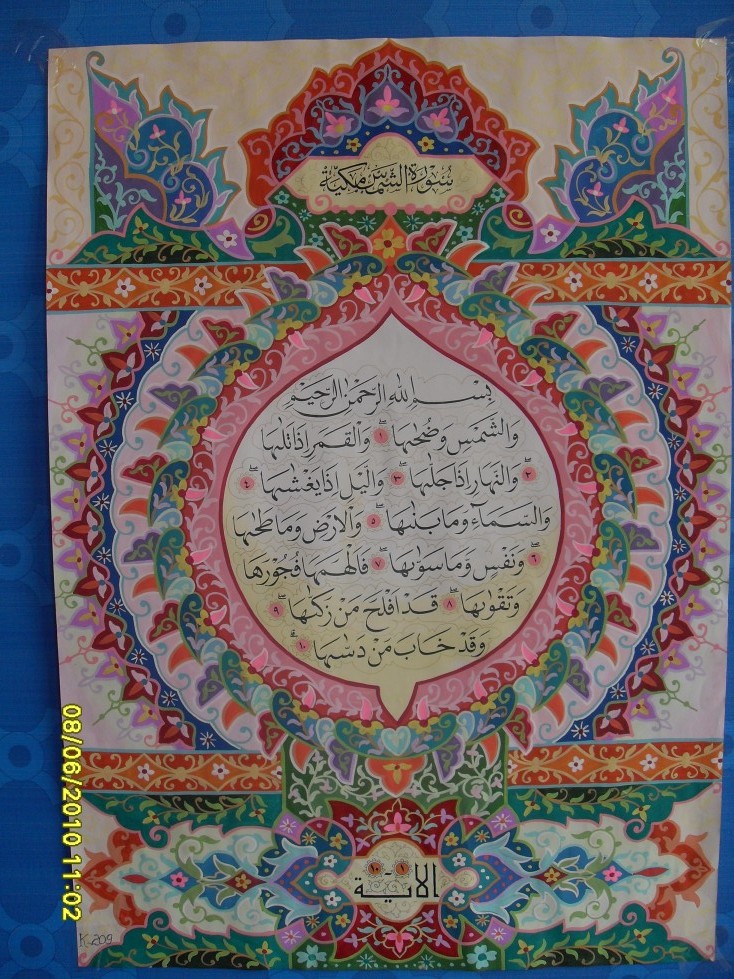 سُوْرَةُ الشَّمْسِ مَكِّيَّةٌ
بِسْمِ اللهِ الرَّحْمٰنِ الرَّحِيْمِ
وَالشَّمْسِ وَضُحٰىهَا ١ وَالْقَمَرِ اِذَا تَلٰىهَا
٢ وَالنَّهَارِ اِذَا جَلّٰىهَا ٣ وَالَّيْلِ اِذَا يَغْشٰىهَا ٤
وَالسَّمَاۤءِ وَمَا بَنٰىهَا ٥ وَالْاَرْضِ وَمَا طَحٰىهَا
٦ وَنَفْسٍ وَّمَا سَوّٰىهَا ٧ فَاَلْهَمَهَا فُجُوْرَهَا
وَتَقْوٰىهَا ٨ قَدْ اَفْلَحَ مَنْ زَكّٰىهَا ٩
وَقَدْ خَابَ مَنْ دَسّٰىهَا ١٠
١ - ١٠
الاية
08/06/2010 11:02
K.209